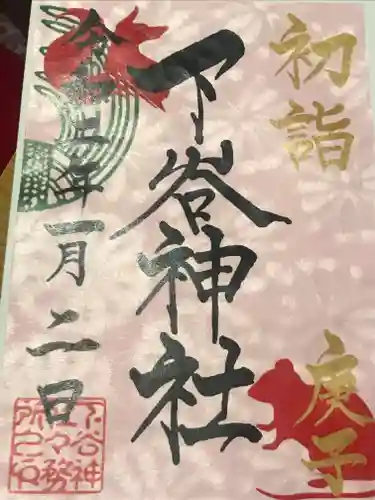 初詣
庚子
下谷神社
令和二年一月二日
下谷神
社々務
所之石